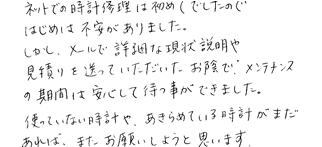 ネットでの時計修理は初めてでしたので
はじめは不安がありました。
しかし、メールで詳細な現状説明や
見積りを送っていただいたお陰で、メンテナンス
の期間は安心して待つ事ができました。
使っていない時計や、あきらめている時計がまだ
あれば、またお願いしようと思います。